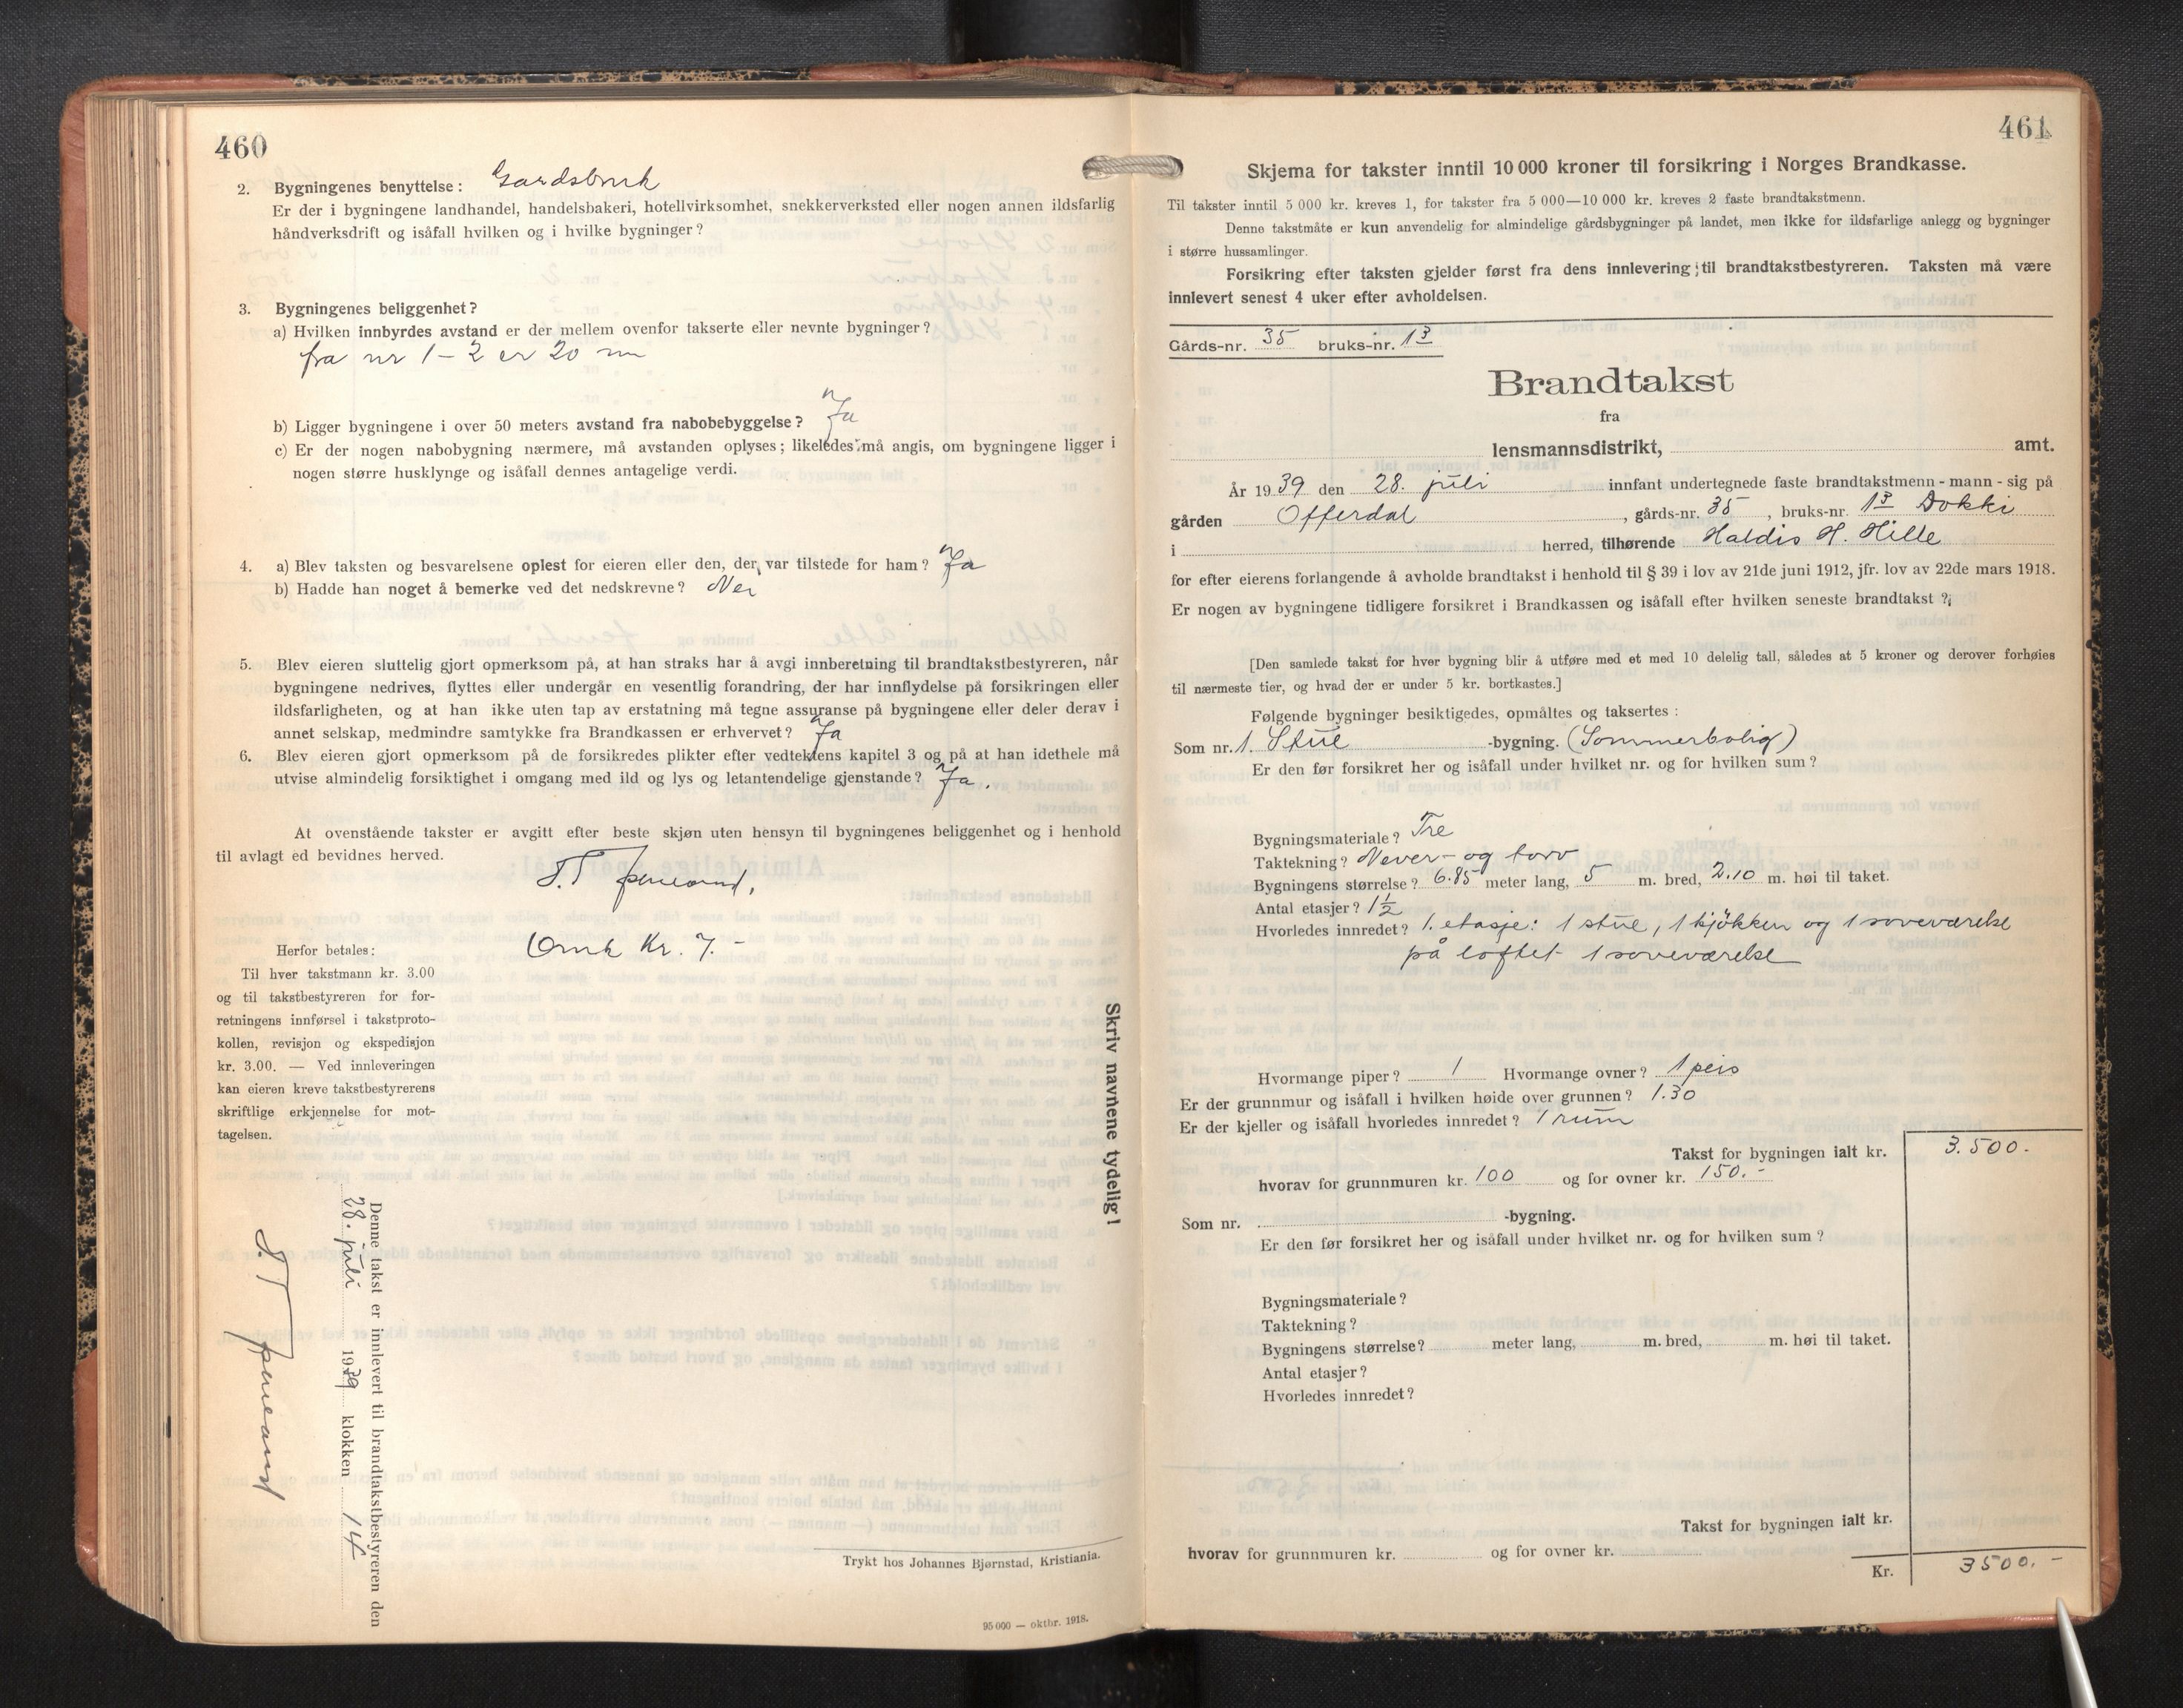 460
2. Bygningenes benyttelse: Gardsbruk
Er der i bygningene landhandel, handelsbakeri, hotellvirksomhet, snekkerverksted eller nogen annen ildsfarlig
håndverksdrift og isåfall hvilken og i hvilke bygninger?
3. Bygningenes beliggenhet?
a) Hvilken innbyrdes avstand er der mellem ovenfor takserte eller nevnte bygninger?
fra nr 1-2 er 20 m
b) Ligger bygningene i over 50 meters avstand fra nabobebyggelse? "Ja
c) Er der nogen nabobygning nærmere, må avstanden oplyses; likeledes må angis, om bygningene ligger i
nogen større husklynge og isåfall dennes antagelige verdi.
4. a) Blev taksten og besvarelsene oplest for eieren eller den, der var tilstede for ham? "Ja
b) Hadde han noget å bemerke ved det nedskrevne? Nei
5. Blev eieren sluttelig gjort opmerksom på, at han straks har å avgi innberetning til brandtakstbestyreren, når
bygningene nedrives, flyttes eller undergår en vesentlig forandring, der har innflydelse på forsikringen eller
ildsfarligheten, og at han ikke uten tap av erstatning må tegne assuranse på bygningene eller deler derav i
annet selskap, medmindre samtykke fra Brandkassen er erhvervet? "Ja
6. Blev eieren gjort opmerksom på de forsikredes plikter efter vedtektens kapitel 3 og på at han idethele må
utvise almindelig forsiktighet i omgang med ild og lys og letantendelige gjenstande? "Ja.
At ovenstående takster er avgitt efter beste skjøn uten hensyn til bygningenes beliggenhet og i henhold
til avlagt ed bevidnes herved.
Herfor betales: Kr. 7.-
Til hver takstmann kr. 3.00
og til takstbestyreren for for-
retningens innførsel i takstproto-
kollen, revisjon og ekspedisjon
kr. 3.00. — Ved innleveringen
kan eieren kreve takstbestyrerens
skriftlige erkjennelse for mot-
tagelsen.
Skriv navnene tydelig!
Denne takst er innlevert til brandtakstbestyreren den
28. juli 1939 klokken 14
Trykt hos Johannes Bjørnstad, Kristiania.
95 000 — oktbr. 1918.
461
Skjema for takster inntil 10 000 kroner til forsikring i Norges Brandkasse.
Til takster inntil 5 000 kr. kreves 1, for takster fra 5 000—10 000 kr. kreves 2 faste brandtakstmenn.
Denne takstmåte er kun anvendelig for almindelige gårdsbygninger på landet, men ikke for ildsfarlige anlegg og bygninger
i større hussamlinger.
Forsikring efter taksten gjelder først fra dens innlevering til brandtakstbestyreren. Taksten må være
innlevert senest 4 uker efter avholdelsen.
Gårds-nr. 35 bruks-nr. 13
Brandtakst
fra
lensmannsdistrikt, amt.
År 1939 den 28. juli innfant undertegnede faste brandtakstmenn - mann - sig på
gården Offerdal, gårds-nr. 35, bruks-nr. 13 Dokki
i herred, tilhørende Haldis H. Hille
for efter eierens forlangende å avholde brandtakst i henhold til § 39 i lov av 21de juni 1912, jfr. lov av 22de mars 1918.
Er nogen av bygningene tidligere forsikret i Brandkassen og isåfall efter hvilken seneste brandtakst?
[Den samlede takst for hver bygning blir å utføre med et med 10 delelig tall, således at 5 kroner og derover forhøies
til nærmeste tier, og hvad der er under 5 kr. bortkastes.]
Følgende bygninger besiktigedes, opmåltes og taksertes:
Som nr. 1. Stue -bygning. (Sommerbolig)
Er den før forsikret her og isåfall under hvilket nr. og for hvilken sum?
Bygningsmateriale? Tre
Taktekning? Never- og torv
Bygningens størrelse? 6.85 meter lang, 5 m. bred, 2.10 m. høi til taket.
Antal etasjer? 1½
Hvorledes innredet? 1. etasje: 1 stue, 1 kjøkken og 1 soveværelse
på loftet 1 soveværelse
Hvormange piper? 1 Hvormange ovner? 1 peis
Er der grunnmur og isåfall i hvilken høide over grunnen? 1.30
Er der kjeller og isåfall hvorledes innredet? 1 rum
Takst for bygningen ialt kr. 3.500.
hvorav for grunnmuren kr. 100 og for ovner kr. 150.-
Som nr. -bygning.
Er den før forsikret her og isåfall under hvilket nr. og for hvilken sum?
Bygningsmateriale?
Taktekning?
Bygningens størrelse? meter lang, m. bred, m. høi til taket.
Antal etasjer?
Hvorledes innredet?
Takst for bygningen ialt kr.
hvorav for grunnmuren kr. og for ovner kr.
Kr. 3500.-